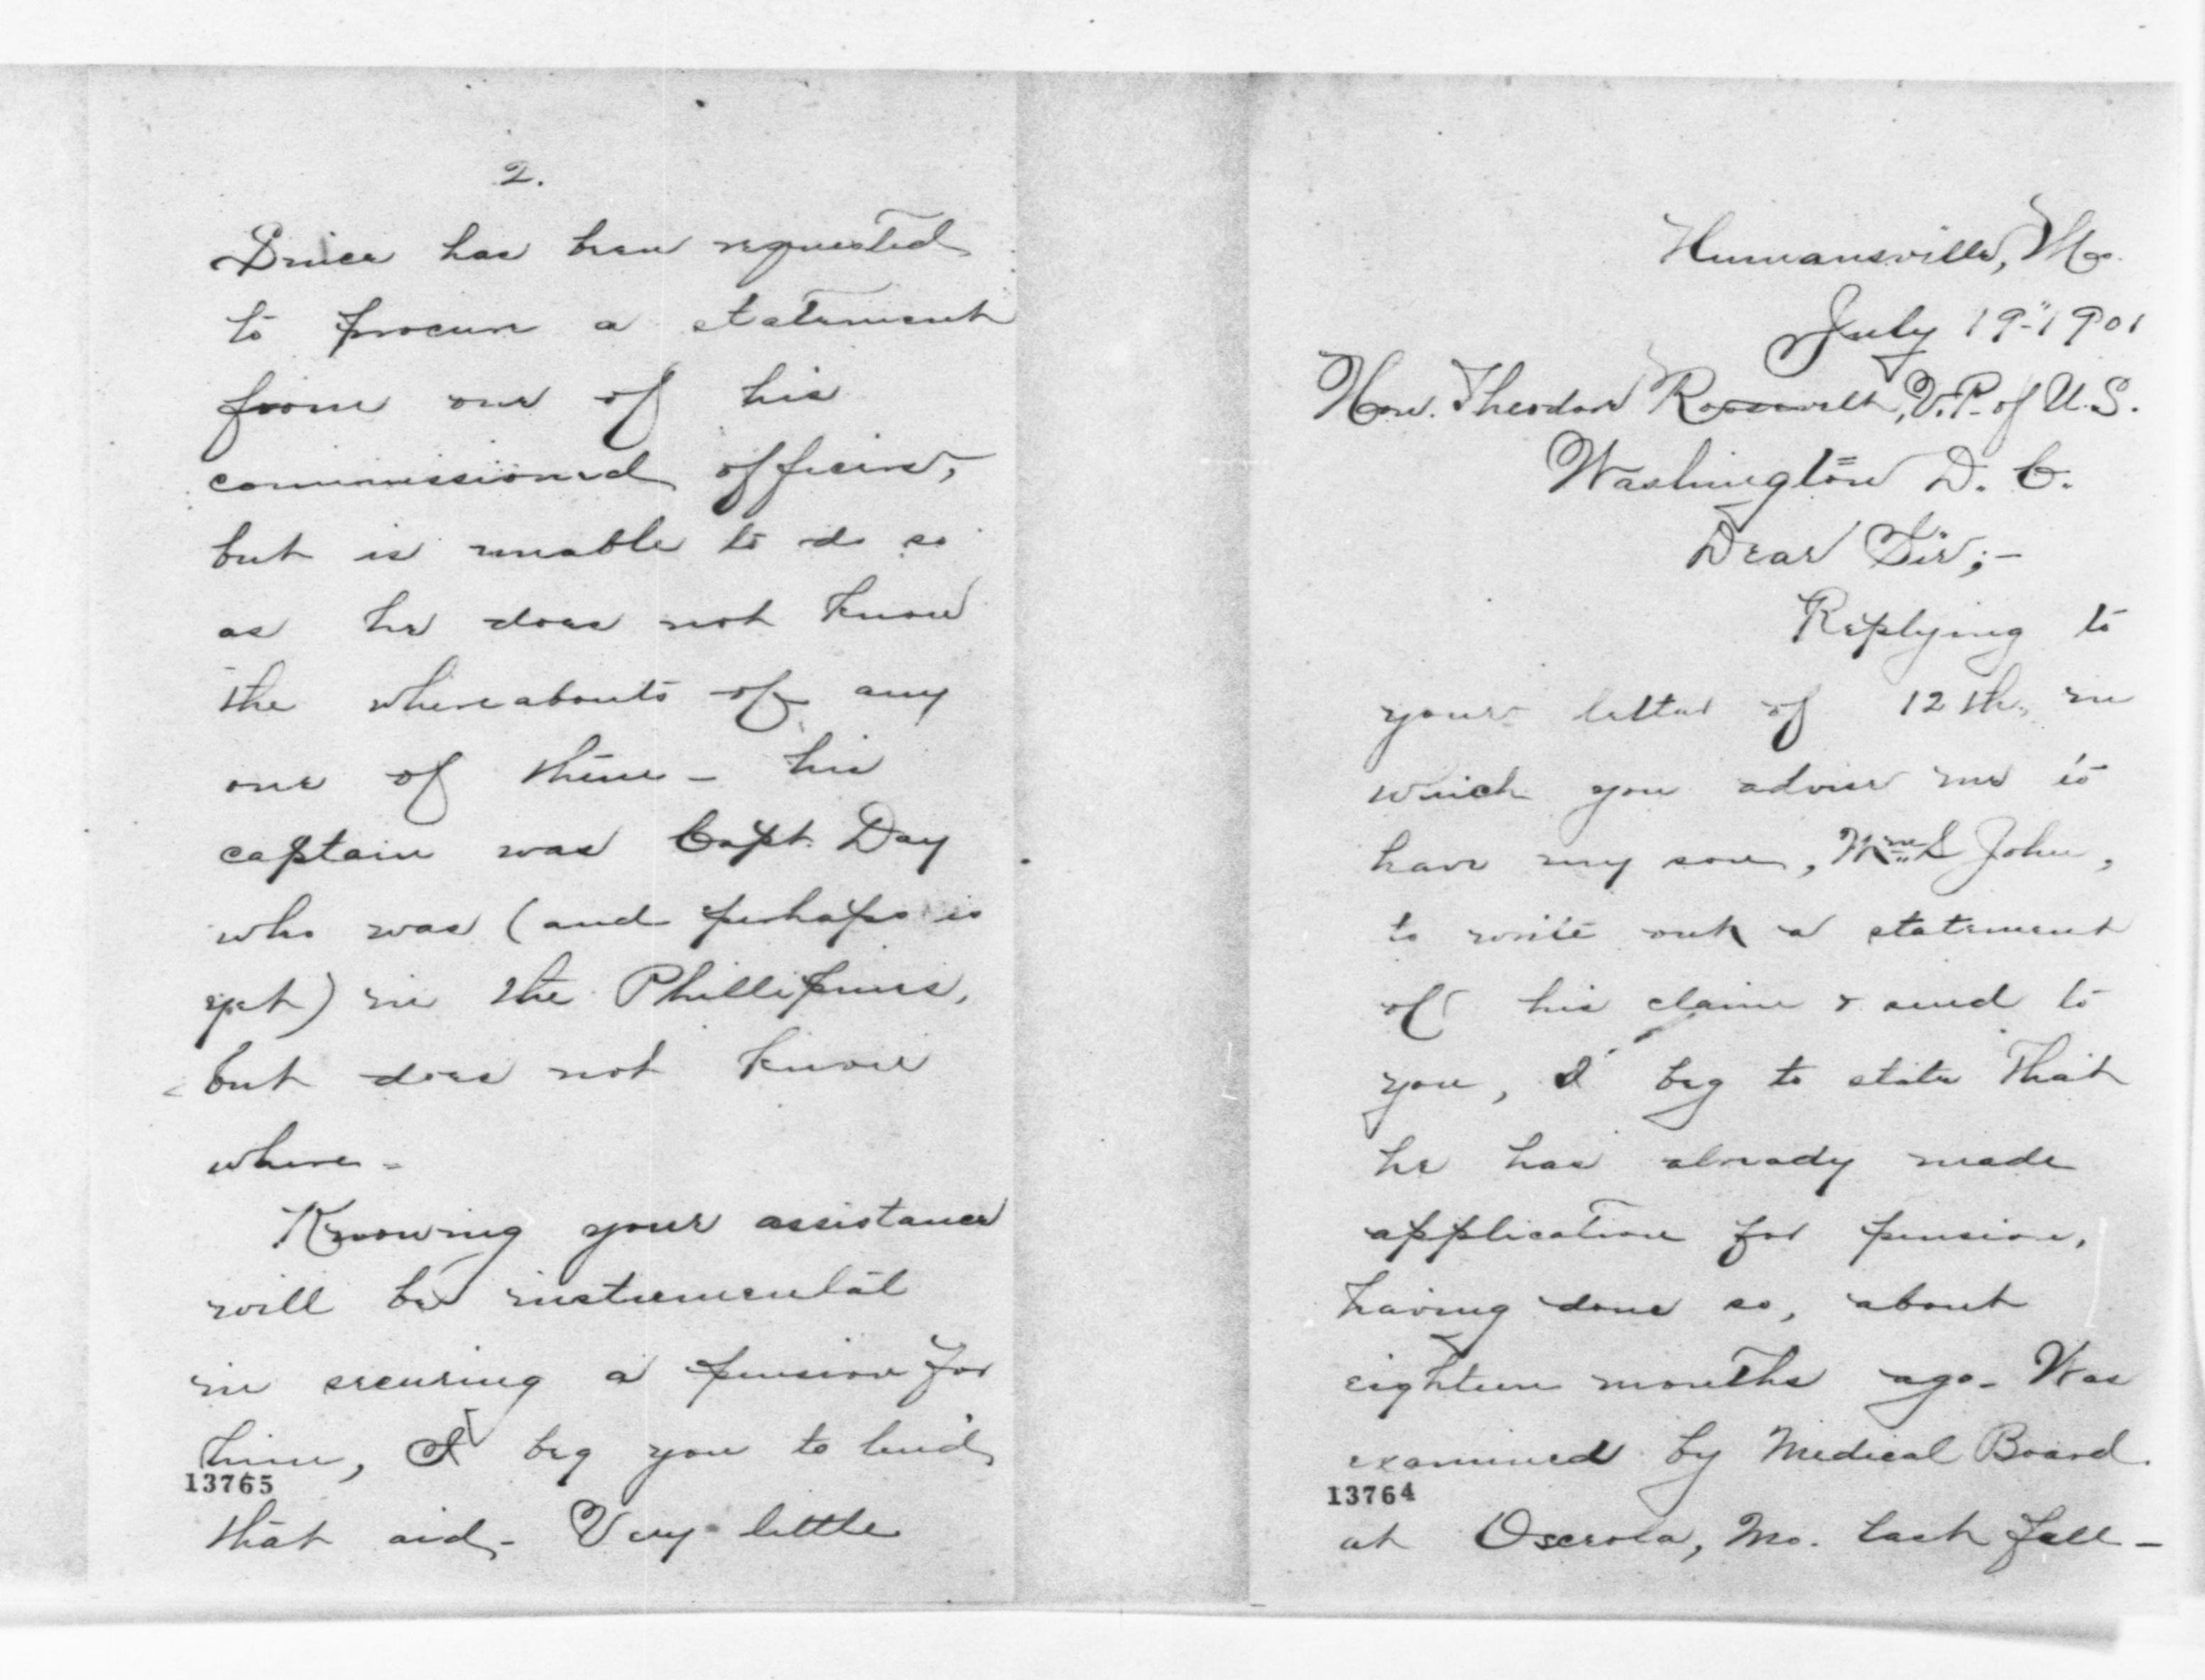 Humansville, Mo.
July 19" 1901
Hon. Theodore Roosevelt, V.P. of U.S.
Washington D. C.
Dear Sir;—
Replying to
your letter of 12th, in
which you advise me to
have my son, Wm S John,
to write out a statement
of his claim & send to
you, I beg to state that
he has already made
application for pension,
having done so, about
eighteen months ago. Was
examined by Medical Board
13764
at Osceola, Mo. last fall—
2.
Since has been requested
to procure a statement
from one of his
commissioned officers,
but is unable to do so
as he does not know
the whereabouts of any
one of them – his
captain was Capt. Day
who was (and perhaps is
yet) in the Phillipines,
but does not know
where –
Knowing your assistance
will be instrumental
in securing a pension for
him, I beg you to lend
13765
that aid. Very little